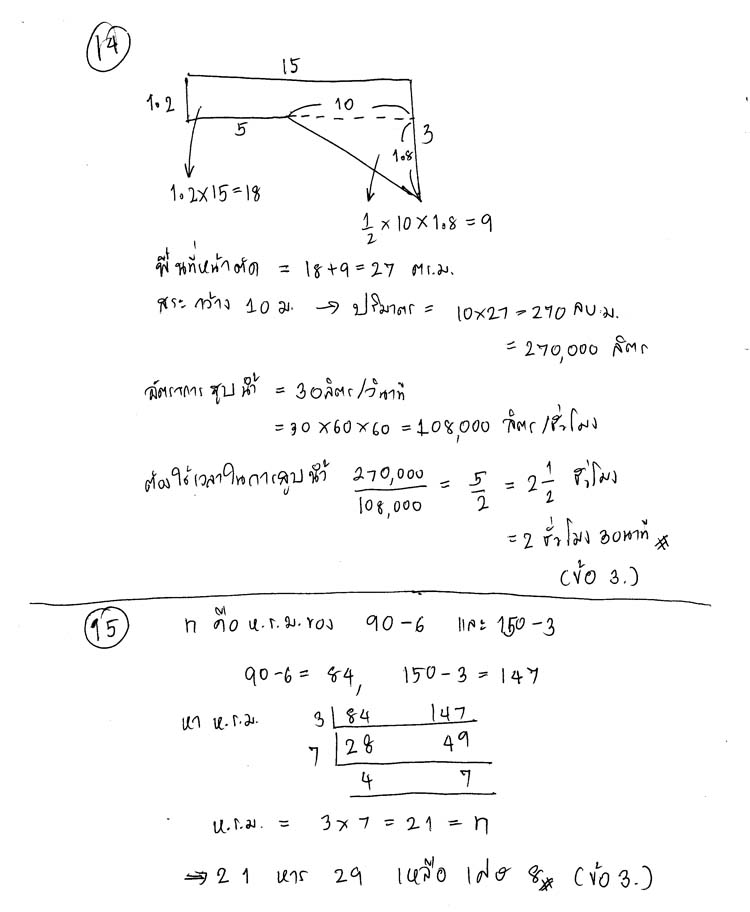 14
15
1.2
10
5
3
1.8
1.2×15=18
1/2 × 10 × 1.8 = 9
พื้นที่หน้าตัด = 18+9 = 27 ตร.ม.
สระ กว้าง 10 ม. → ปริมาตร = 10×27 = 270 ลบ.ม.
= 270,000 ลิตร
อัตราการสูบน้ำ = 30 ลิตร/วินาที
= 30 × 60 × 60 = 108,000 ลิตร/ชั่วโมง
ต้องใช้เวลาในการสูบน้ำ 270,000/108,000 = 5/2 = 2 1/2 ชั่วโมง
= 2 ชั่วโมง 30 นาที *
(ข้อ 3.)
15 n คือ ห.ร.ม. ของ 90-6 และ 150-3
90-6 = 84, 150-3 = 147
หา ห.ร.ม. 3 | 84 147
7 | 28 49
4 7
ห.ร.ม. = 3×7 = 21 = n
⇒ 21 หาร 29 เหลือ เศษ 8 * (ข้อ 3.)